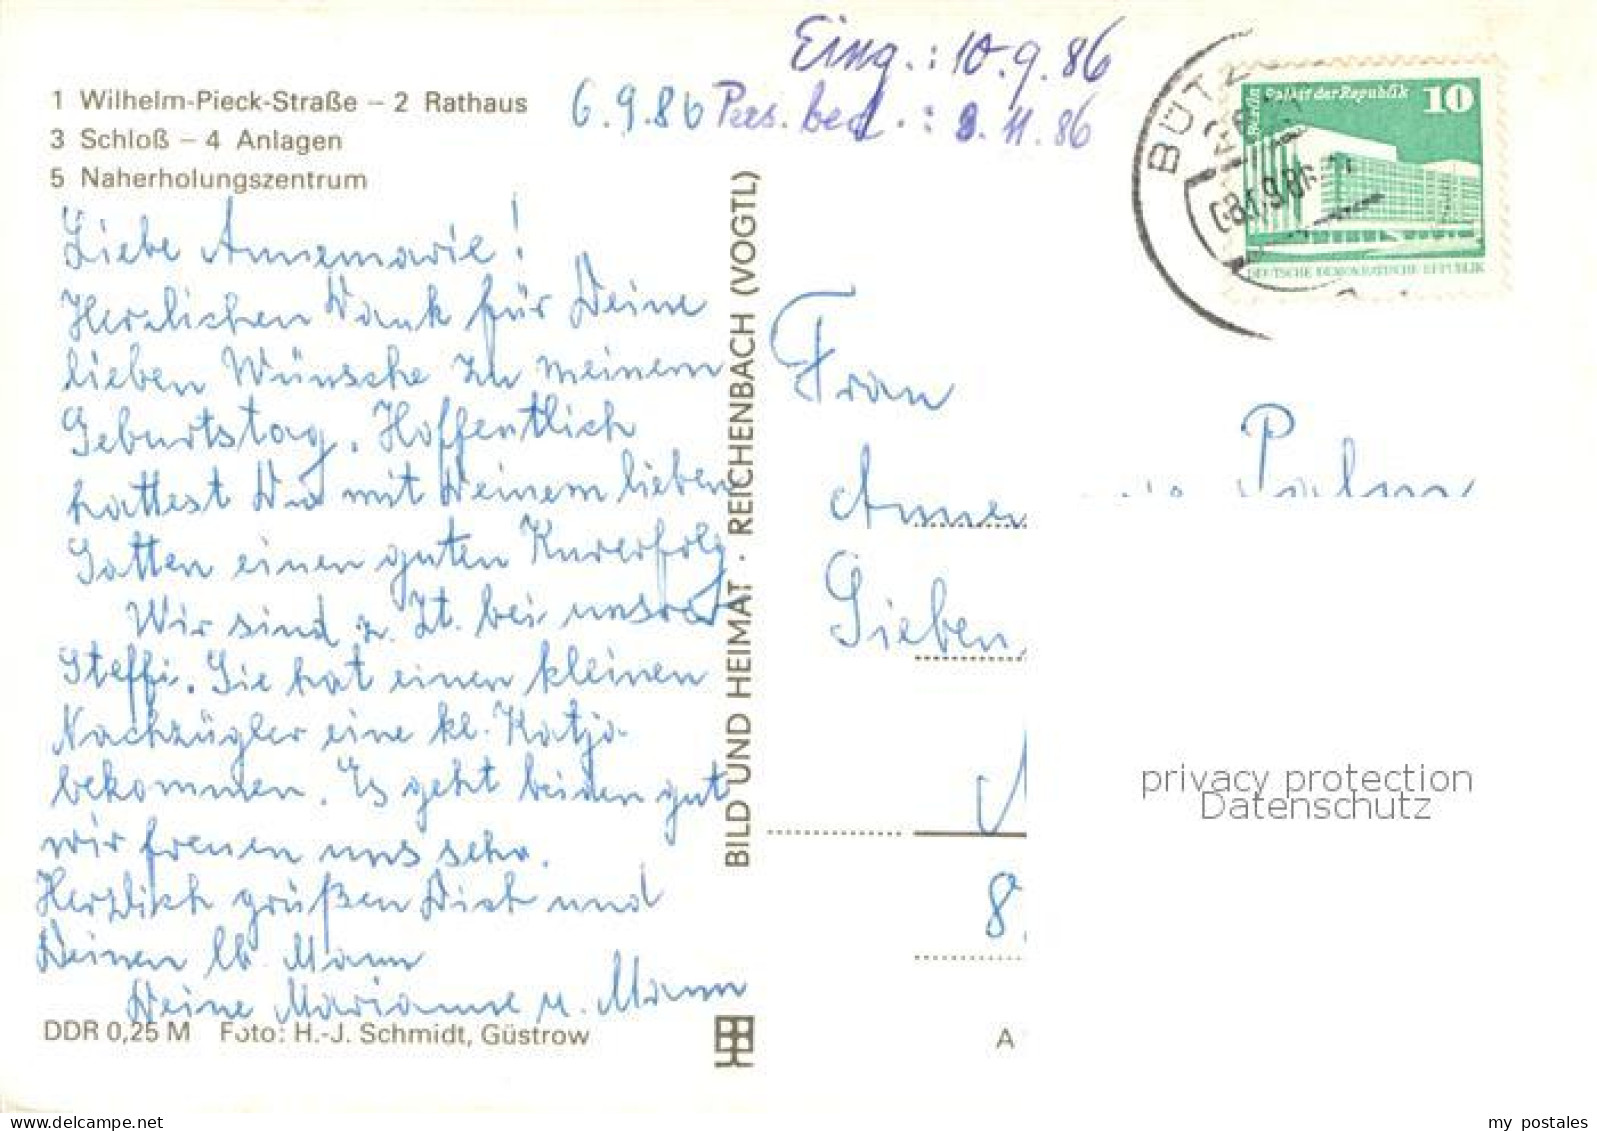 Eing.: 10.9.86
6.9.86 Pers. bed.: 9.11.86
1 Wilhelm-Pieck-Straße – 2 Rathaus
3 Schloß – 4 Anlagen
5 Naherholungszentrum
Liebe Annemarie!
Herzlichen Dank für Deine
lieben Wünsche zu meinem
Geburtstag. Hoffentlich
hattest Du mit Deinem lieben
Gatten einen guten Kurerfolg
Wir sind z. Zt. bei unsrer
Steffi. Sie hat einen kleinen
Nachzügler eine kl. Katja
bekommen. Es geht beiden gut
wir freuen uns sehr.
Herzlich grüßen Dich und
Deinen lb. Mann
Deine Marianne u. Mann
DDR 0,25 M Foto: H.-J. Schmidt, Güstrow
BILD UND HEIMAT · REICHENBACH (VOGTL)
BÜTZ
Berlin
Palast der Republik 10
DEUTSCHE DEMOKRATISCHE REPUBLIK
Frau
Anne
Sieben
8
A
privacy protection
Datenschutz
https://www.delcampe.net
my_postales